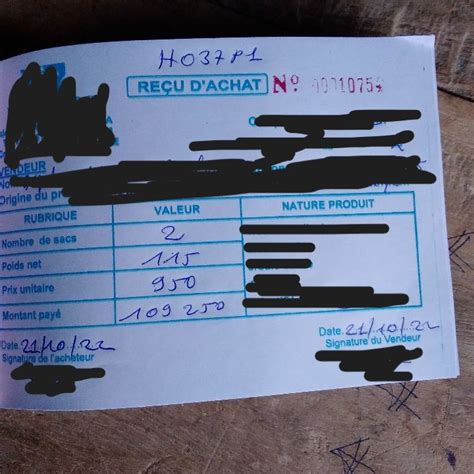 H037P1
REÇU D'ACHAT Nº 00010754
VENDEUR
Origine du
RUBRIQUE VALEUR NATURE PRODUIT
Nombre de sacs 2
Poids net 115
Prix unitaire 950
Montant payé 109 250
Date. 21/10/22 Date. 21/10/22
Signature de l'acheteur Signature du Vendeur